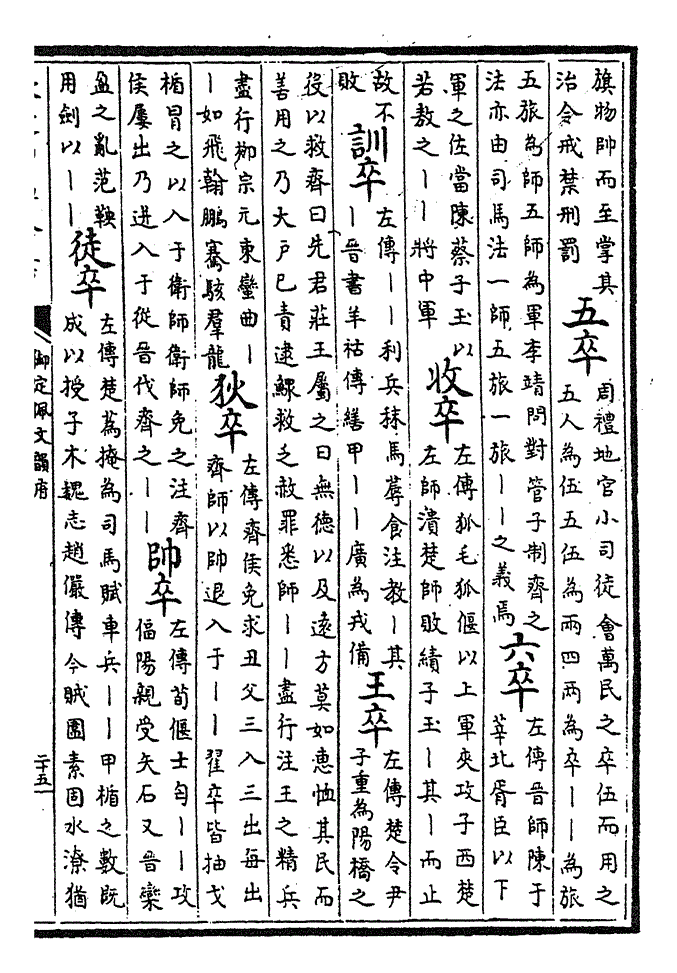 旗物帥而至掌其
治令戒禁刑罰
五卒
周禮地官小司徒會萬民之卒伍而用之
五人為伍五伍為兩四兩為卒丨丨為旅
五旅為師五師為軍李靖問對管子制齊之
法亦由司馬法一師五旅一旅丨丨之義焉
六卒
左傳晉師陳于
莘北胥臣以下
軍之佐當陳蔡子玉以
若敖之丨丨將中軍
收卒
左傳狐毛狐偃以上軍夾攻子西楚
左師潰楚師敗績子玉丨其丨而止
故不
敗
訓卒
左傳丨丨利兵秣馬蓐食注教丨其
丨晉書羊祜傳繕甲丨丨廣為戎備
王卒
左傳楚令尹
子重為陽橋之
役以救齊曰先君莊王屬之曰無德以及遠方莫如惠恤其民而
善用之乃大戶已責逮鰥救乏赦罪悉師丨丨盡行注王之精兵
盡行柳宗元東蠻曲丨
丨如飛翰鵬騫駭羣龍
狄卒
左傳齊侯免求丑父三入三出每出
齊師以帥退入于丨丨翟卒皆抽戈
楯冒之以入于衛師衛師免之注齊
侯屢出乃迸入于從晉伐齊之丨丨
帥卒
左傳荀偃士匄丨丨攻
偪陽親受矢石又晉欒
盈之亂范鞅
用劍以丨丨
徒卒
左傳楚蒍掩為司馬賦車兵丨丨甲楯之數既
成以授子木魏志趙儼傳今賊圍素固水潦猶
御定佩文韻府
二十五